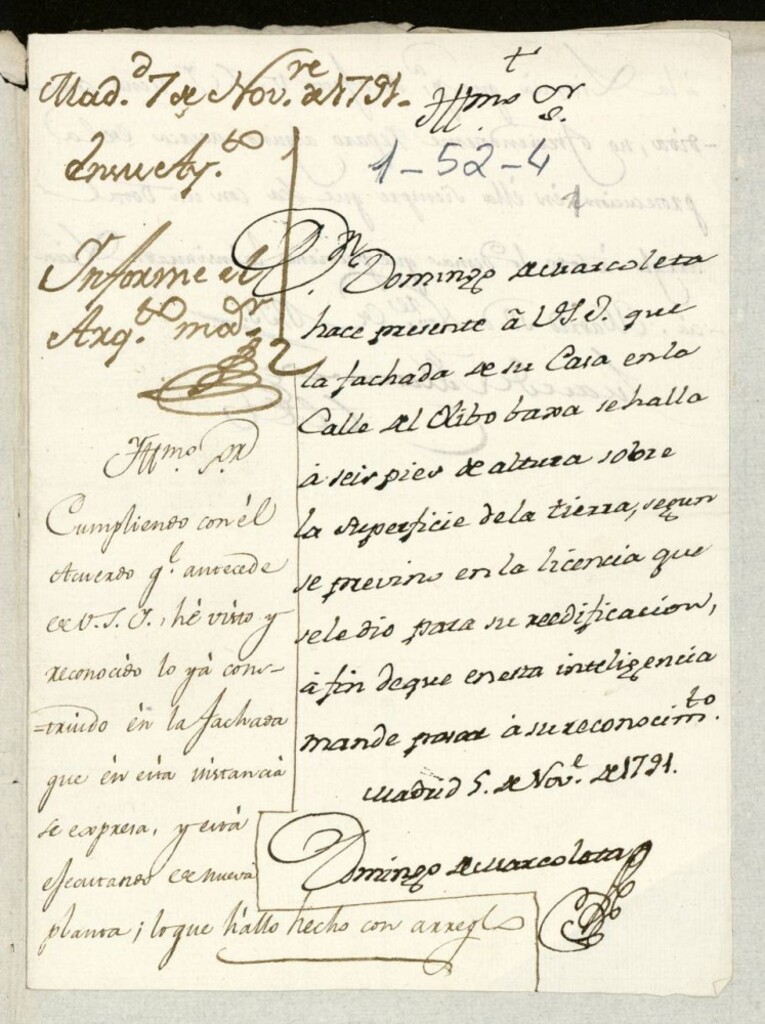 Mad.d 7 de Nov.re de 1791.
En su Ay.to
Informe el
Arq.to mor.
†
Illmo. Sor.
1-52-4
1
Dn. Domingo de Marcoleta
hace presente â V.S.I. que
la fachada de su Casa en la
Calle del Olibo baxa se halla
â seis pies de altura sobre
la superficie dela tierra, segun
se previno en la licencia que
sele dio para su reedificacion,
â fin deque en esta inteligencia
mande pasar â su reconocim.to
Madrid 5. de Nov.e de 1791.
Domingo de Marcoleta
Illmo. Sor
Cumpliendo con él
Acuerdo q.e antecede
de V.S.I., hé visto y
reconocido lo yá cons-
=truido én la fachada
que én esta instancia
se expresa, y está
ejecutando de nueva
planta; lo que hallo hecho con arreglo